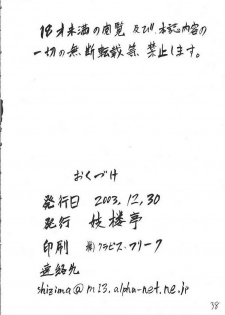 18才未満の閲覧及び、本誌の内容の
一切の無断転載等、禁止します。
おくづけ
発行日 2003.12.30
発行 妓楼亭
印刷 ㈱グラビス・フリーク
連絡先
shizima@m13.alpha-net.ne.jp
38